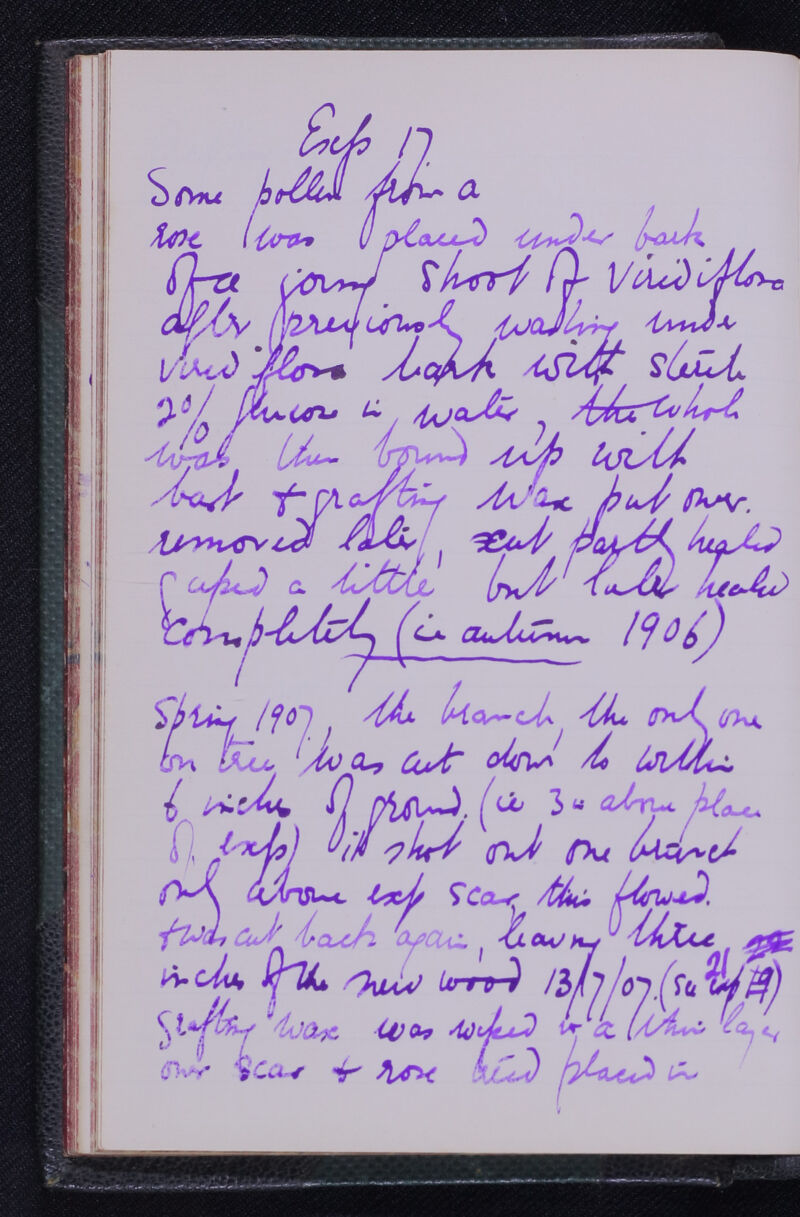 Exp 17
Some pollen from a
rose was placed under bark
of a young shoot of Viridiflora
after previously washing under
viridiflora bark with sterile
2% glucose in water, the whole
was then bound up with
bast & grafting wax put over.
removed later, cut partly healed
gaped a little but later healed
completely (ie autumn 1906)
Spring 1907, the branch, the only one
on tree was cut down to within
6 inches of ground. (ie 3in above place
of exp) it shot out one branch
only above exp scar, this flowed.
& was cut back again, leaving three
inches of the new wood 13/7/07. (See exp 21)
grafting wax was wiped in a thin layer
over scar & rose placed in